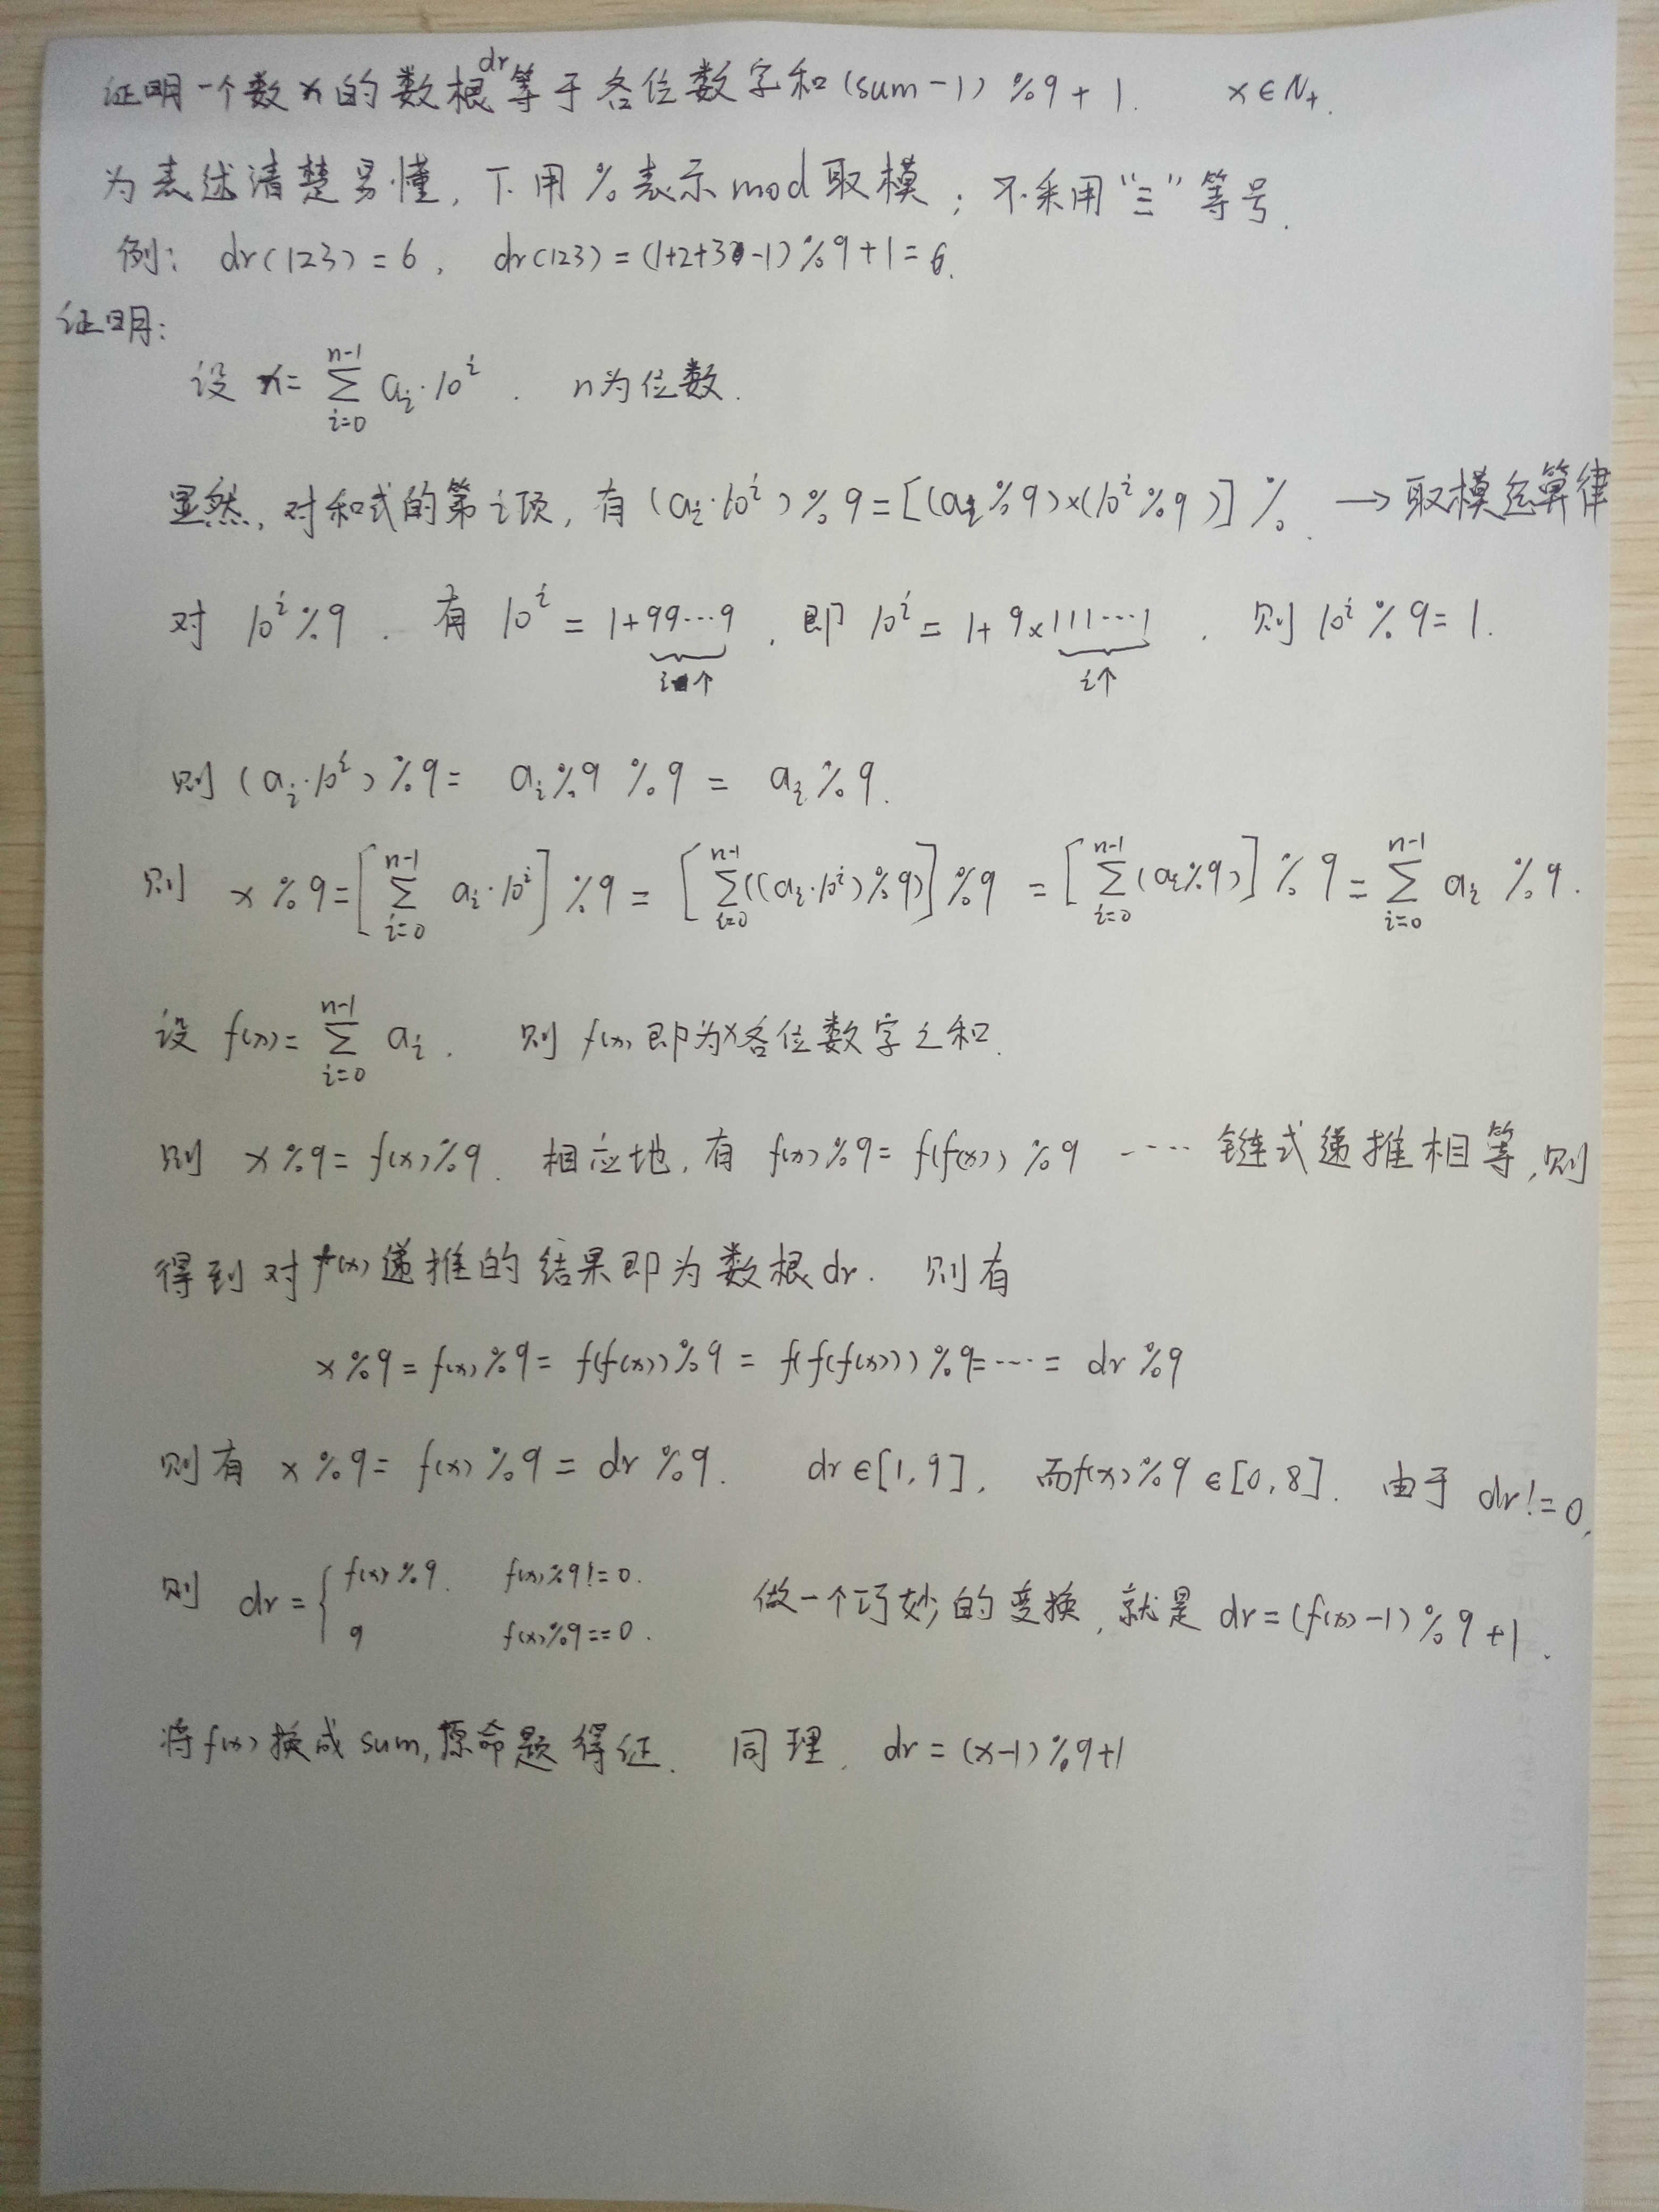 证明一个数x的数根dr等于各位数字和(sum-1)%9+1. x∈N₊.
为表述清楚易懂,下用%表示mod取模;不采用“≡”等号.
例: dr(123)=6, dr(123)=(1+2+3-1)%9+1=6.
证明:
设 x=∑_{i=0}^{n-1} aᵢ·10ⁱ. n为位数.
显然,对和式的第i项,有(aᵢ·10ⁱ)%9=[(aᵢ%9)×(10ⁱ%9)]%. →取模运算律
对 10ⁱ%9. 有 10ⁱ=1+99…9, 即 10ⁱ=1+9×111…1. 则 10ⁱ%9=1.
i个 i个
则(aᵢ·10ⁱ)%9= aᵢ%9 %9 = aᵢ%9.
则 x%9=[∑_{i=0}^{n-1} aᵢ·10ⁱ]%9=[∑_{i=0}^{n-1}((aᵢ·10ⁱ)%9)]%9=[∑_{i=0}^{n-1}(aᵢ%9)]%9=∑_{i=0}^{n-1} aᵢ %9.
设 f(x)=∑_{i=0}^{n-1} aᵢ. 则 f(x)即为x各位数字之和.
则 x%9=f(x)%9. 相应地,有 f(x)%9=f(f(x))%9 ……链式递推相等,则
得到对f(x)递推的结果即为数根dr. 则有
x%9=f(x)%9=f(f(x))%9=f(f(f(x)))%9=……=dr%9
则有 x%9=f(x)%9=dr%9. dr∈[1,9], 而f(x)%9∈[0,8]. 由于 dr!=0,
则 dr={ f(x)%9. f(x)%9!=0. 做一个巧妙的变换,就是 dr=(f(x)-1)%9+1.
9 f(x)%9==0.
将f(x)换成sum,原命题得证. 同理, dr=(x-1)%9+1